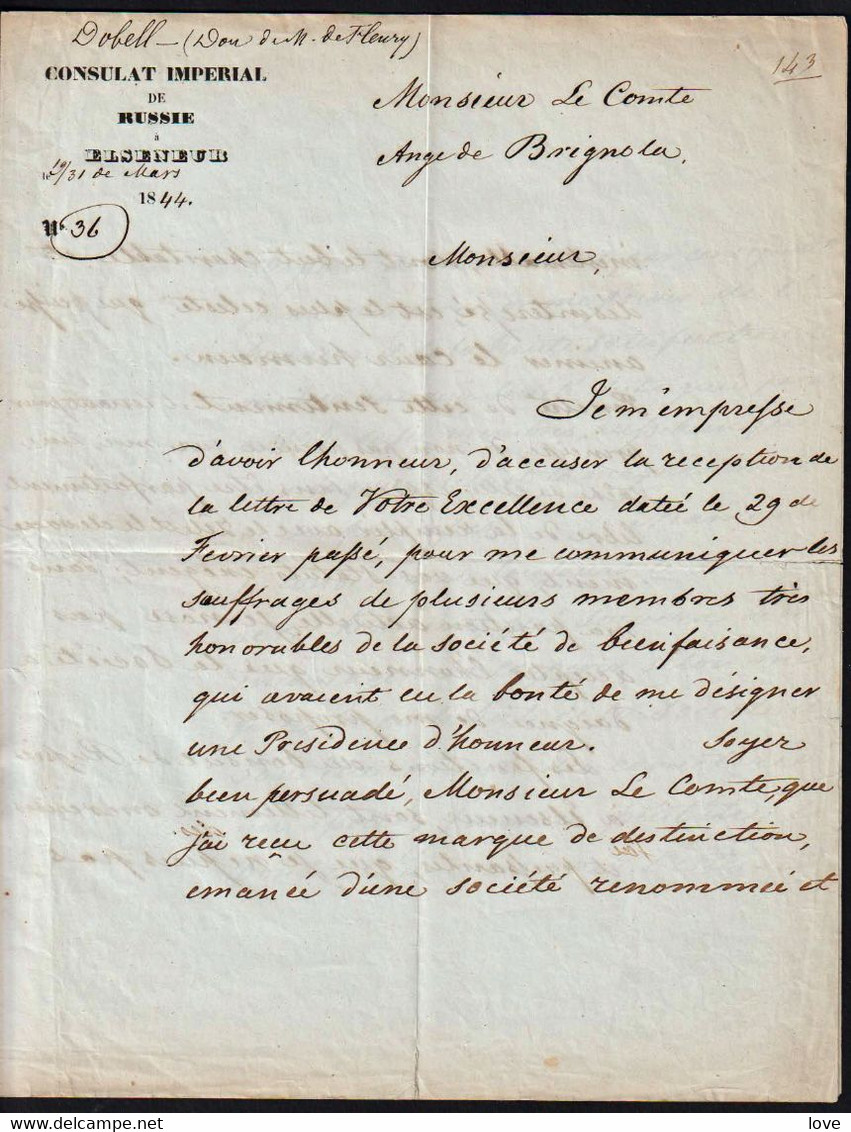 Dobell — (Don de M. de Fleury)
143
CONSULAT IMPERIAL
DE
RUSSIE
à
ELSENEUR
le 19/31 de Mars
1844.
No. 36
Monsieur Le Comte
Ange de Brignola,
Monsieur,
Je m'empresse
d'avoir l'honneur, d'accuser la reception de
la lettre de Votre Excellence datée le 29 de
Fevrier passé, pour me communiquer les
souffrages de plusieurs membres très
honorables de la société de bienfaisance,
qui avaient eu la bonté de me désigner
une Presidence d'honneur. Soyez
bien persuadé, Monsieur Le Comte, que
j'ai reçu cette marque de destinction,
emanée d'une société renommée et
delcampe.net
love